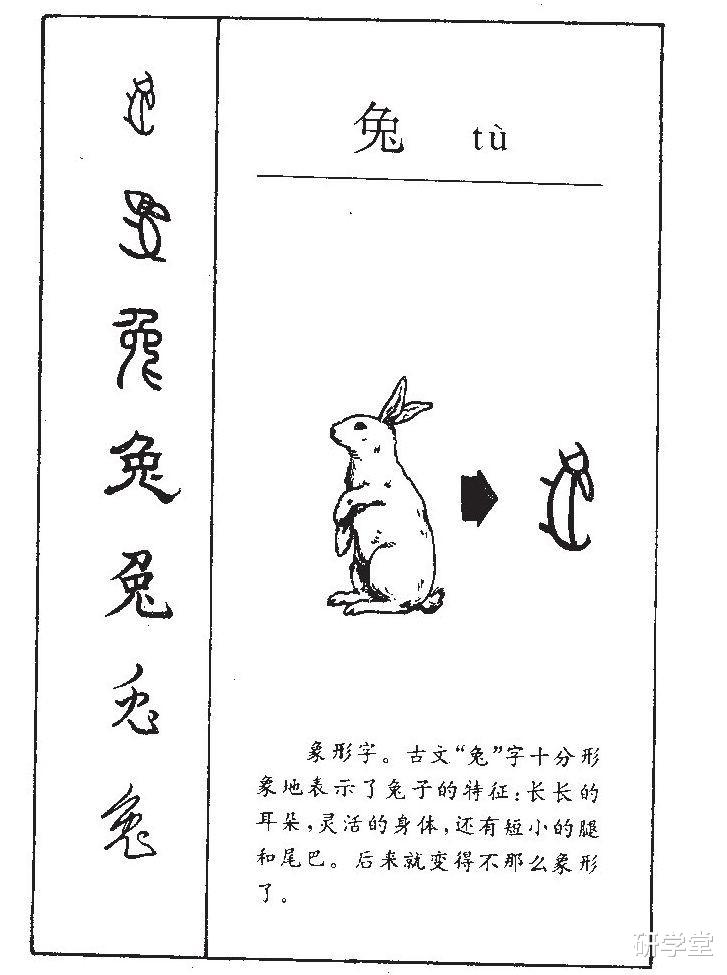 兔 tù
象形字。古文“兔”字十分形
象地表示了兔子的特征:长长的
耳朵,灵活的身体,还有短小的腿
和尾巴。后来就变得不那么象形
了。
兔
兔
兔
兔
研学堂